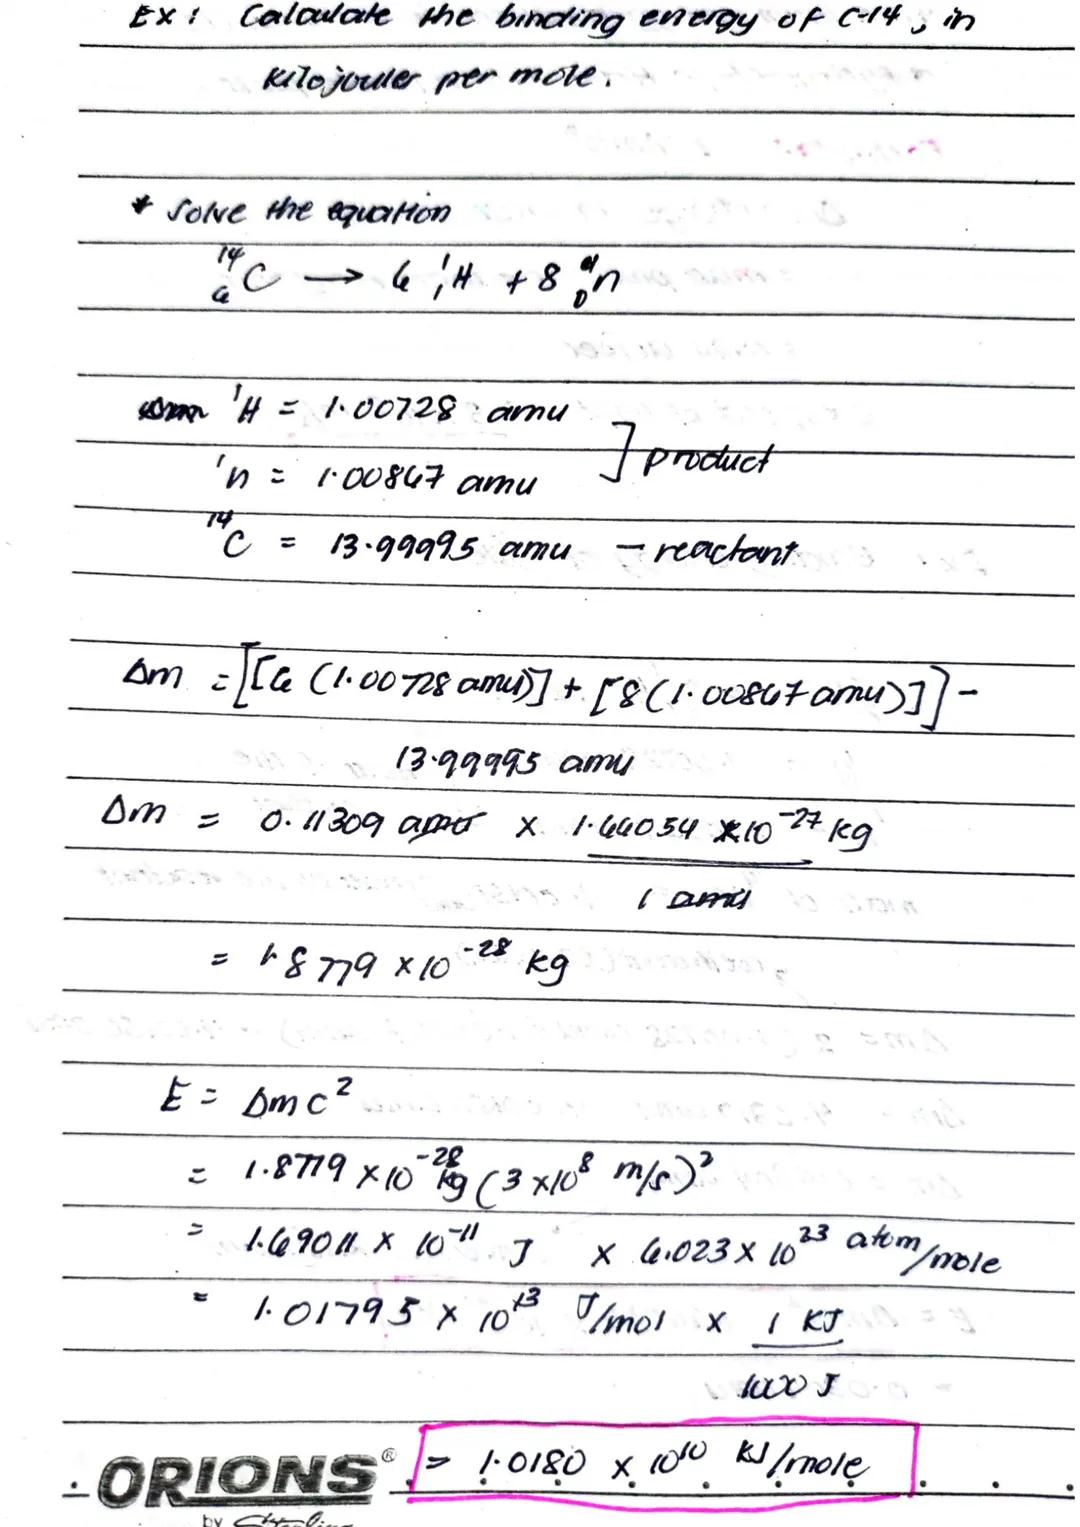 Ex: Calculate the binding energy of C-14, in
Kilojoules per mole.
* Solve the equation
¹⁴₆C → 6 ¹₁H + 8 ¹₀n
¹H = 1.00728 amu
¹n = 1.00867 amu
] product
¹⁴C = 13.99995 amu — reactant
Δm = [[6 (1.00728 amu)] + [8 (1.00867 amu)]] -
13.99995 amu
Δm = 0.11309 amu x 1.66054 x 10⁻²⁷ kg
1 amu
= 1.8779 x 10⁻²⁸ kg
E = Δmc²
= 1.8779 x 10⁻²⁸ kg (3 x 10⁸ m/s)²
= 1.69011 x 10⁻¹¹ J x 6.023 x 10²³ atom/mole
= 1.01795 x 10⁺¹³ J/mol x 1 KJ
1000 J
= 1.0180 x 10¹⁰ KJ/mole
ORIONS®
by Sterling